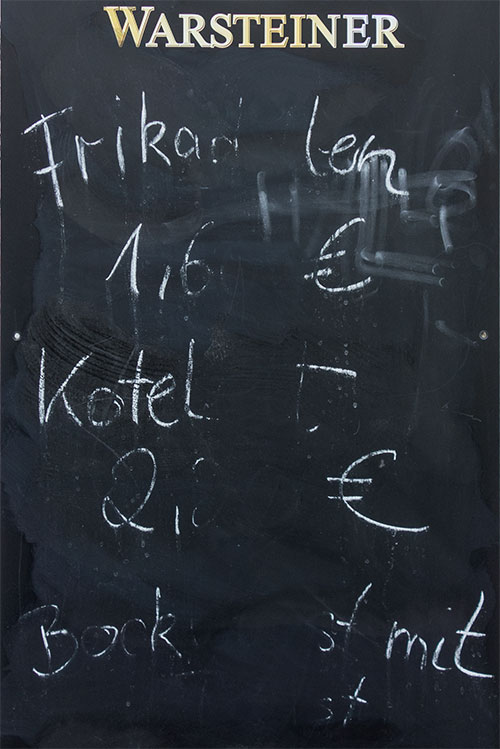 WARSTEINER
Frikad len
1,6 €
Kotel
2, €
Bock st mit
st